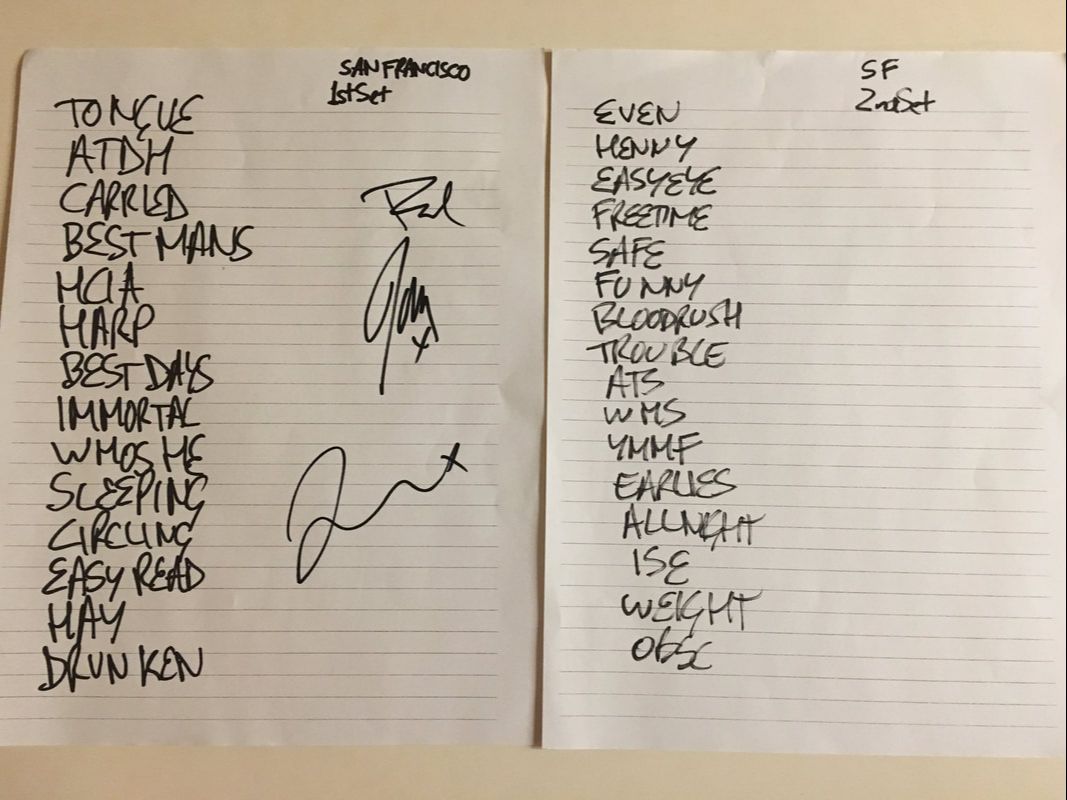 SAN FRANCISCO
1st Set
TONGUE
ATDH
CARRIED
BEST MANS
HCIA
HARP
BEST DAYS
IMMORTAL
WHOS HE
SLEEPING
CIRCLING
EASY READ
HAY
DRUNKEN
SF
2nd Set
EVEN
HENNY
EASYEYE
FREETIME
SAFE
FUNNY
BLOODRUSH
TROUBLE
ATS
WMS
YMMF
EARLIES
ALLNIGHT
ISE
WEIGHT
Obsc